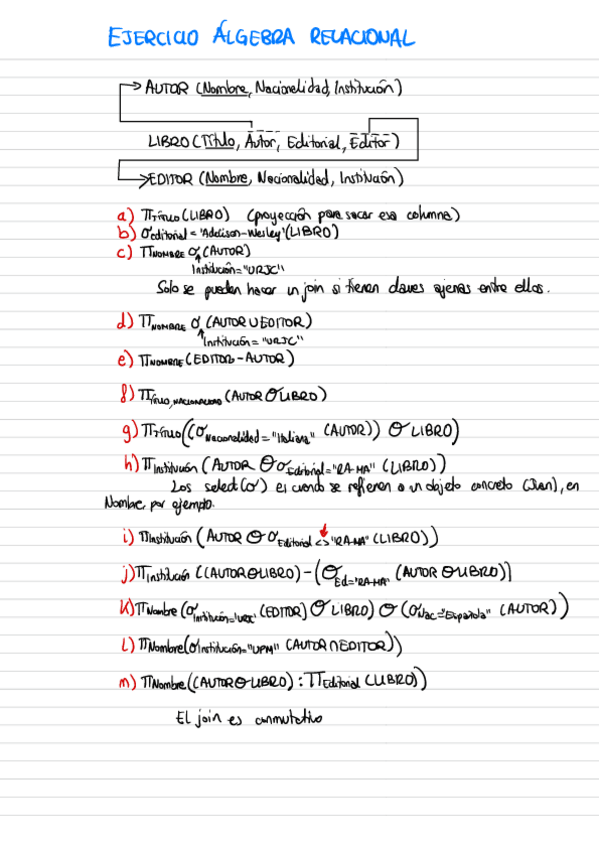 EJERCICIO ÁLGEBRA RELACIONAL
AUTOR (Nombre, Nacionalidad, Institución)
LIBRO (Título, Autor, Editorial, Editor)
EDITOR (Nombre, Nacionalidad, Institución)
a) ΠTítulo (LIBRO) (proyección para sacar esa columna)
b) σeditorial = 'Addison-Wesley' (LIBRO)
c) ΠNOMBRE σ (AUTOR)
Institución = "URJC"
Solo se pueden hacer un join si tienen claves ajenas entre ellos.
d) ΠNOMBRE σ (AUTOR U EDITOR)
Institución = "URJC"
e) ΠNOMBRE (EDITOR - AUTOR)
f) ΠTÍTULO, NACIONALIDAD (AUTOR Θ LIBRO)
g) ΠTítulo ((σNacionalidad = "Italiana" (AUTOR)) Θ LIBRO)
h) ΠInstitución (AUTOR Θ σEditorial = "RA-MA" (LIBRO))
Los select (σ) es cuando se refieren a un objeto concreto (Juan), en
Nombre, por ejemplo.
i) ΠInstitución (AUTOR Θ σEditorial <> "RA-MA" (LIBRO))
j) ΠInstitución ((AUTOR Θ LIBRO) - (σEd = 'RA-MA' (AUTOR Θ LIBRO))
K) ΠNombre (σInstitución = 'URJC' (EDITOR) Θ LIBRO) Θ (σNac = "Española" (AUTOR))
L) ΠNombre (σInstitución = "UPM" (AUTOR ∩ EDITOR))
m) ΠNombre ((AUTOR Θ LIBRO) : ΠEditorial (LIBRO))
El join es conmutativo